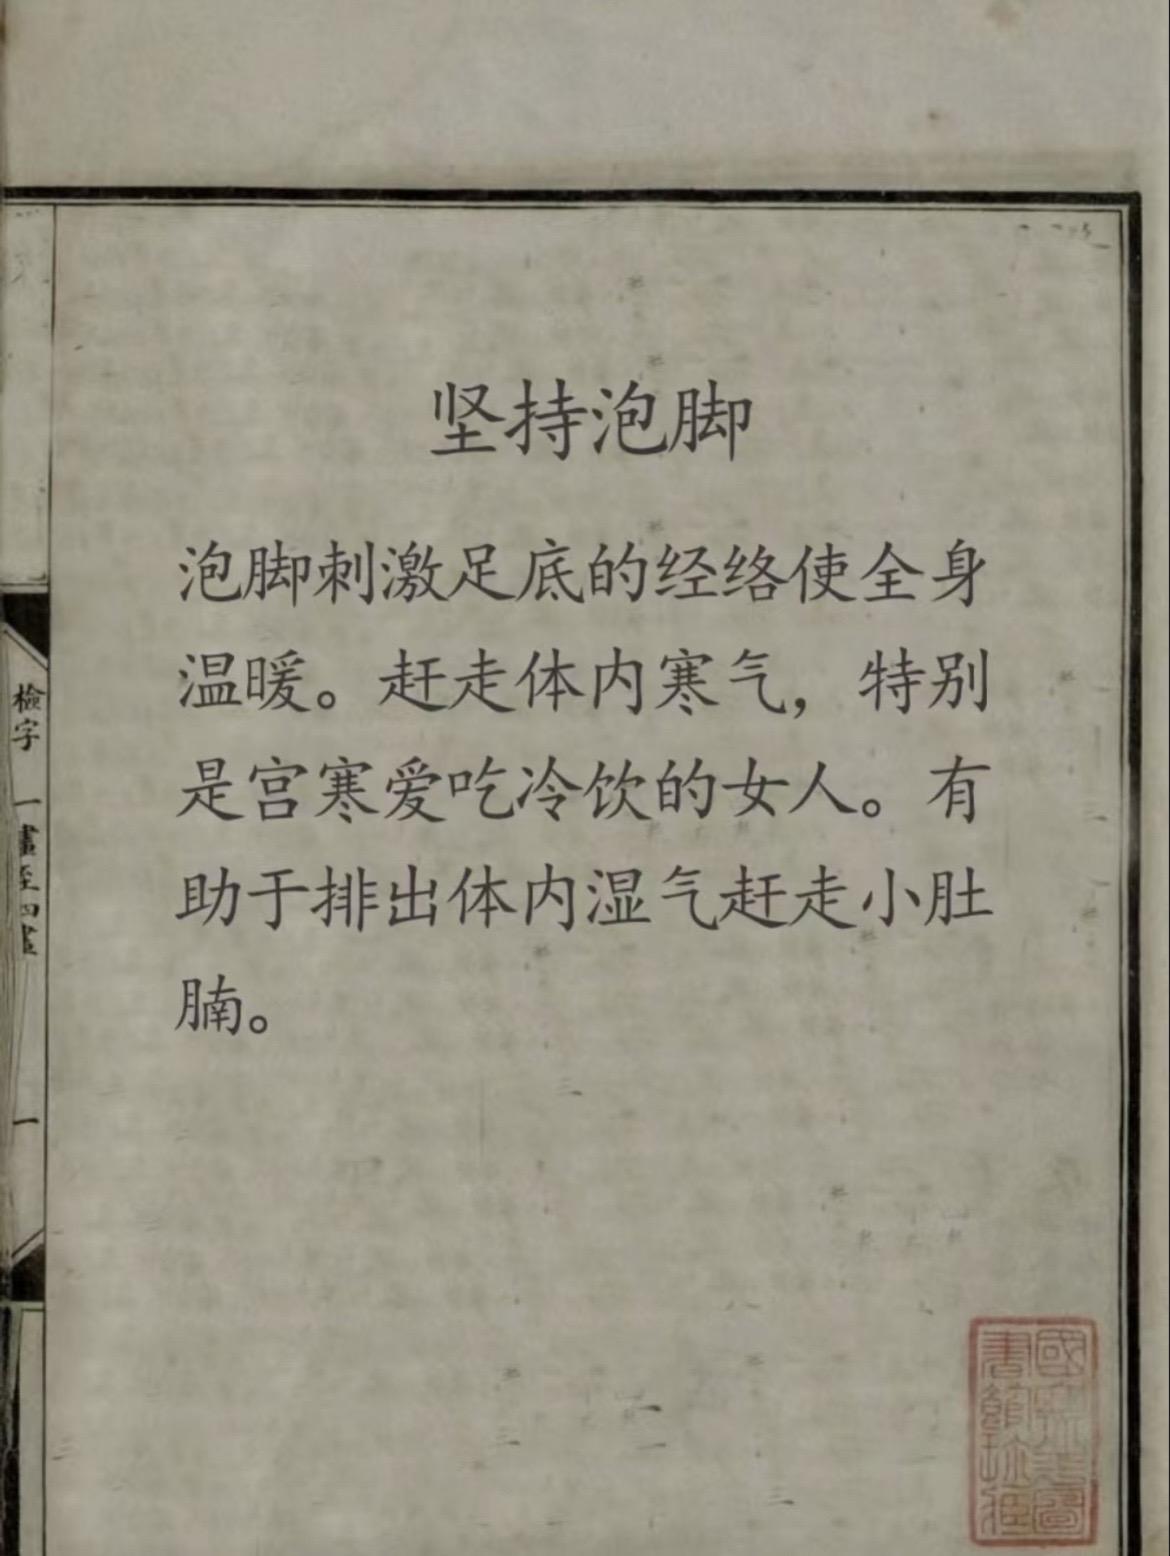 坚持泡脚
泡脚刺激足底的经络使全身
温暖。赶走体内寒气，特别
是宫寒爱吃冷饮的女人。有
助于排出体内湿气赶走小肚
腩。
檢字
一畫至四畫
一